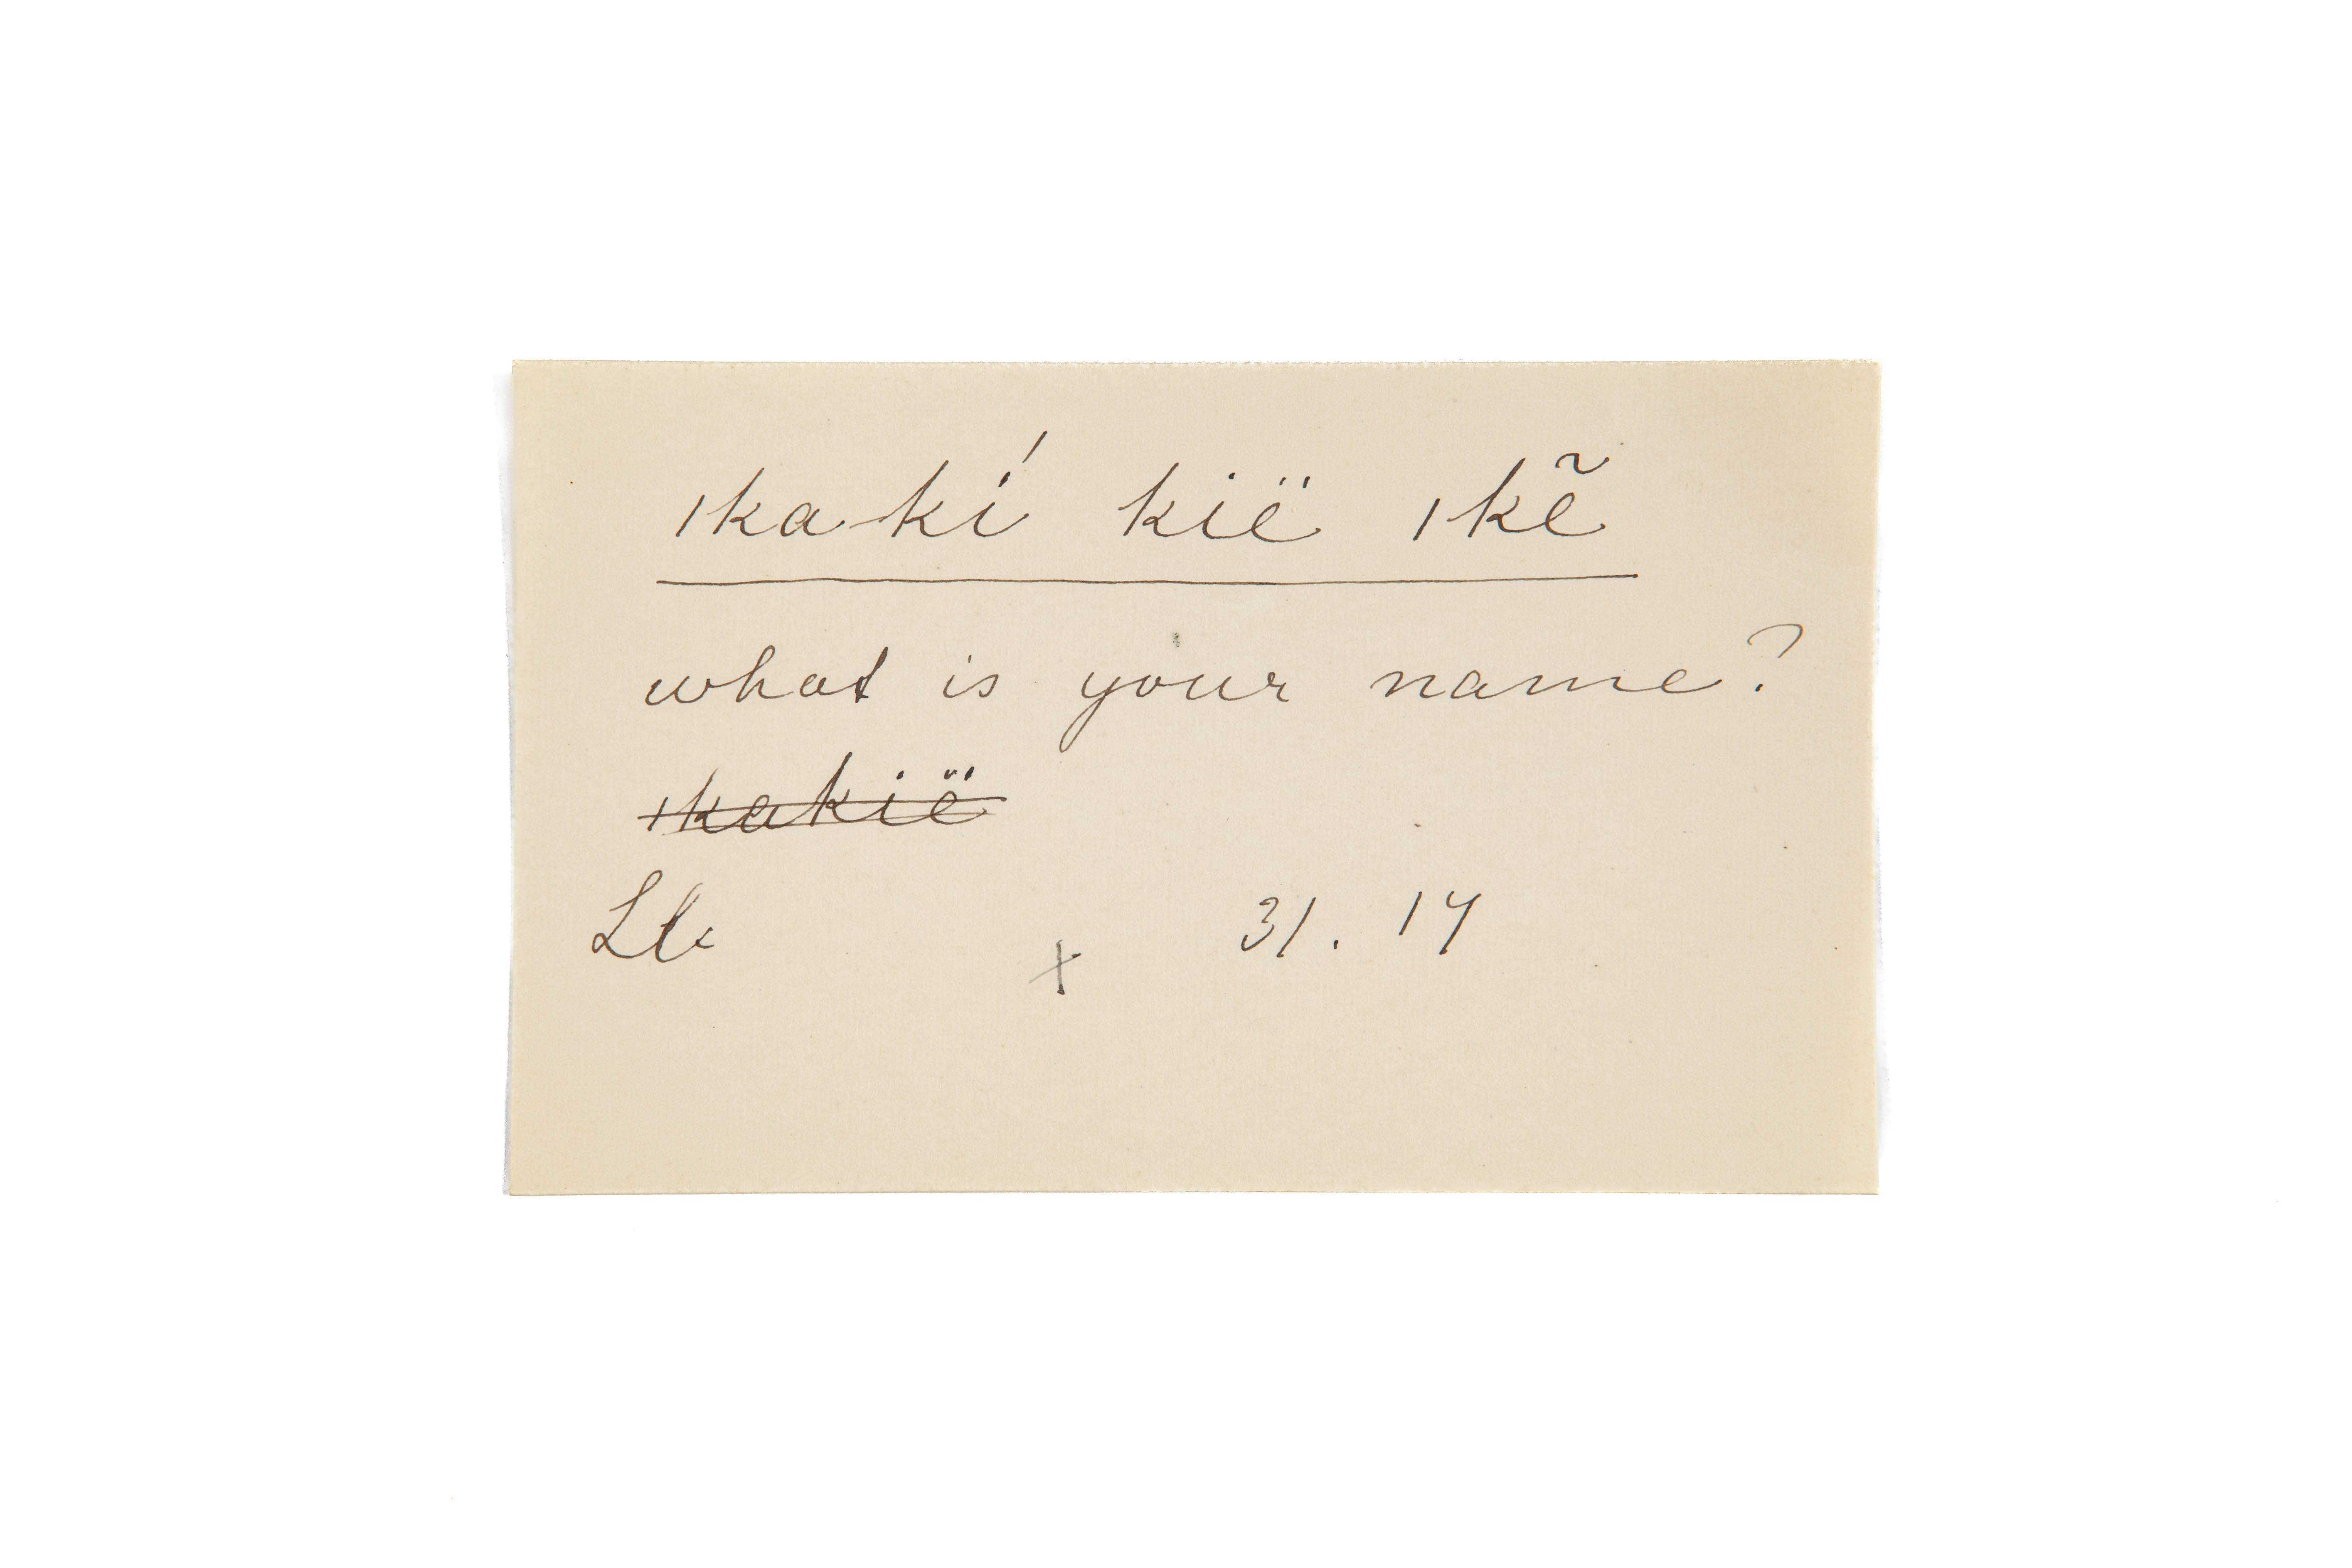 ǀka-kí' kië ǀkẽ
what is your name?
ǀkakië
Ll.
x 31. 14